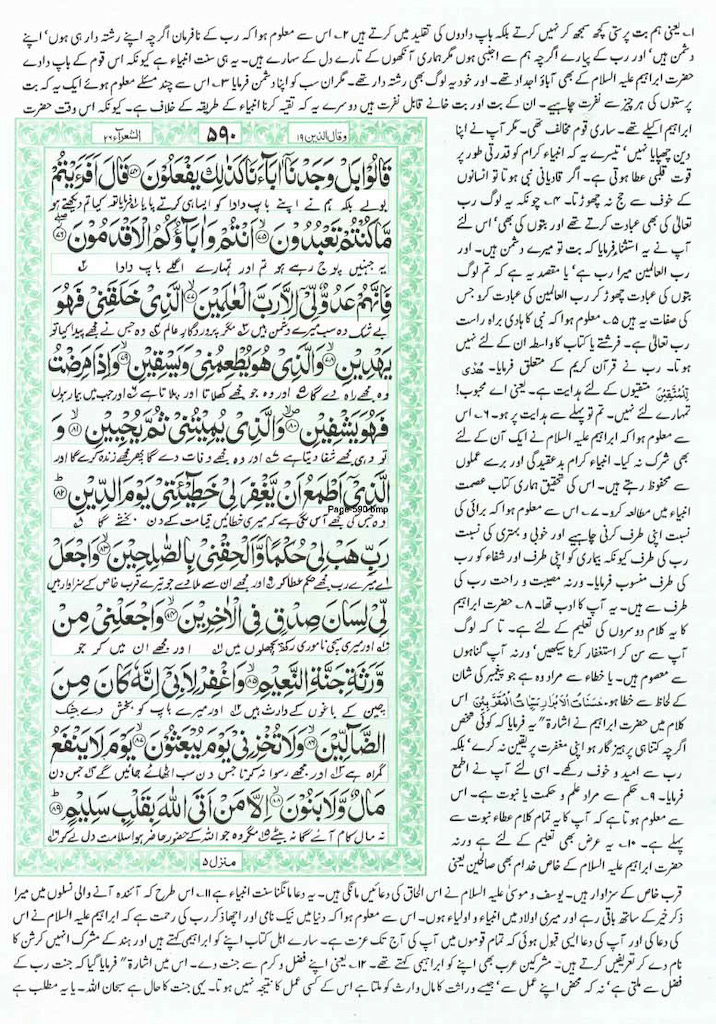 ۱؎ یعنی ہم بت پرستی کچھ سمجھ کر نہیں کرتے بلکہ باپ دادوں کی تقلید میں کرتے ہیں ۲؎ اس سے معلوم ہوا کہ رب کے نافرمان اگرچہ اپنے رشتہ دار ہی ہوں' اپنے
دشمن ہیں' اور رب کے پیارے اگرچہ ہم سے اجنبی ہوں مگر ہماری آنکھوں کے تارے دل کے سہارے ہیں۔ یہ ہی سنت انبیاء ہے کیونکہ اس قوم کے باپ دادے
حضرت ابراہیم علیہ السلام کے بھی آباؤ اجداد تھے۔ اور خود یہ لوگ بھی رشتہ دار تھے۔ مگر ان سب کو اپنا دشمن فرمایا ۳؎ اس سے چند مسئلے معلوم ہوئے ایک یہ کہ بت
پرستوں کی ہر چیز سے نفرت چاہیے۔ ان کے بت اور بت خانے قابل نفرت ہیں دوسرے یہ کہ تقیہ کرنا انبیاء کے طریقہ کے خلاف ہے۔ کیونکہ اس وقت حضرت
وقال الذین ۱۹
۵۹۰
الشعرآء ۲۶
قَالُوۡا بَلۡ وَجَدۡنَاۤ اٰبَآءَنَا كَذٰلِكَ يَفۡعَلُوۡنَ ﴿۷۴﴾ قَالَ اَفَرَءَيۡتُمۡ
بولے بلکہ ہم نے اپنے باپ دادا کو ایسا ہی کرتے پایا فرمایا تو کیا تم دیکھتے ہو
مَّا كُنۡتُمۡ تَعۡبُدُوۡنَ ﴿۷۵﴾ اَنۡتُمۡ وَاٰبَآؤُكُمُ الۡاَقۡدَمُوۡنَ ﴿۷۶﴾
یہ جنہیں پوج رہے ہو تم اور تمہارے اگلے باپ دادا
فَاِنَّهُمۡ عَدُوٌّ لِّىۡۤ اِلَّا رَبَّ الۡعٰلَمِيۡنَ ﴿۷۷﴾ الَّذِىۡ خَلَقَنِىۡ فَهُوَ
بے شک وہ سب میرے دشمن ہیں مگر پروردگار عالم وہ جس نے مجھے پیدا کیا تو
يَهۡدِيۡنِ ﴿۷۸﴾ وَالَّذِىۡ هُوَ يُطۡعِمُنِىۡ وَيَسۡقِيۡنِ ﴿۷۹﴾ وَاِذَا مَرِضۡتُ
وہ مجھے راہ دے گا اور وہ جو مجھے کھلاتا اور پلاتا ہے اور جب میں بیمار ہوں
فَهُوَ يَشۡفِيۡنِ ﴿۸۰﴾ وَالَّذِىۡ يُمِيۡتُنِىۡ ثُمَّ يُحۡيِيۡنِ ﴿۸۱﴾ وَ
تو وہی مجھے شفا دیتا ہے اور وہ مجھے وفات دے گا پھر مجھے زندہ کرے گا اور
الَّذِىۡۤ اَطۡمَعُ اَنۡ يَّغۡفِرَ لِىۡ خَطِيۡٓئَتِىۡ يَوۡمَ الدِّيۡنِ ﴿۸۲﴾
وہ جس کی مجھے آس لگی ہے کہ میری خطائیں قیامت کے دن بخشے گا
Page 590.bmp
رَبِّ هَبۡ لِىۡ حُكۡمًا وَّاَلۡحِقۡنِىۡ بِالصّٰلِحِيۡنَ ﴿۸۳﴾ وَاجۡعَلۡ
اے میرے رب مجھے حکم عطا کر اور مجھے ان سے ملا دے جو تیرے قرب خاص کے سزاوار ہیں
لِّىۡ لِسَانَ صِدۡقٍ فِى الۡاٰخِرِيۡنَ ﴿۸۴﴾ وَاجۡعَلۡنِىۡ مِنۡ
اور میری سچی ناموری رکھ پچھلوں میں اور مجھے ان میں کر جو
وَّرَثَةِ جَنَّةِ النَّعِيۡمِ ﴿۸۵﴾ وَاغۡفِرۡ لِاَبِىۡۤ اِنَّهٗ كَانَ مِنَ
چین کے باغوں کے وارث ہیں اور میرے باپ کو بخش دے بیشک وہ
الضَّآلِّيۡنَ ﴿۸۶﴾ وَلَا تُخۡزِنِىۡ يَوۡمَ يُبۡعَثُوۡنَ ﴿۸۷﴾ يَوۡمَ لَا يَنۡفَعُ
گمراہ ہے اور مجھے رسوا نہ کرنا جس دن سب اٹھائے جائیں گے جس دن
مَالٌ وَّلَا بَنُوۡنَ ﴿۸۸﴾ اِلَّا مَنۡ اَتَى اللّٰهَ بِقَلۡبٍ سَلِيۡمٍ ﴿۸۹﴾
نہ مال کام آئے گا نہ بیٹے مگر وہ جو اللہ کے حضور حاضر ہوا سلامت دل لے کر
منزل ۵
ابراہیم اکیلے تھے۔ ساری قوم مخالف تھی۔ مگر آپ نے اپنا
دین چھپایا نہیں' تیسرے یہ کہ انبیاء کرام کو قدرتی طور پر
قوت قلبی عطا ہوتی ہے۔ اگر قادیانی نبی ہوتا تو انسانوں
کے خوف سے حج نہ چھوڑتا۔ ۴؎ چونکہ یہ لوگ رب
تعالیٰ کی بھی عبادت کرتے تھے اور بتوں کی بھی' اس لئے
آپ نے یہ استثناء فرمایا کہ بت تو میرے دشمن ہیں۔ اور
رب العالمین میرا رب ہے' یا مقصد یہ ہے کہ تم لوگ
بتوں کی عبادت چھوڑ کر رب العالمین کی عبادت کرو جس
کی صفات یہ ہیں ۵؎ معلوم ہوا کہ نبی کا ہادی براہ راست
رب تعالیٰ ہے۔ فرشتے یا کتاب کا واسطہ ان کے لئے نہیں
ہوتا۔ رب نے قرآن کریم کے متعلق فرمایا۔ هُدًى
لِّلْمُتَّقِيْنَ متقیوں کے لئے ہدایت ہے۔ یعنی اے محبوب!
تمہارے لئے نہیں۔ تم تو پہلے سے ہدایت پر ہو۔ ۶؎ اس
سے معلوم ہوا کہ ابراہیم علیہ السلام نے ایک آن کے لئے
بھی شرک نہ کیا۔ انبیاء کرام بدعقیدگی اور برے عملوں
سے محفوظ رہتے ہیں۔ اس کی تحقیق ہماری کتاب عصمت
انبیاء میں مطالعہ کرو۔ ۷؎ اس سے معلوم ہوا کہ برائی کی
نسبت اپنی طرف کرنی چاہیے اور خوبی و بہتری کی نسبت
رب کی طرف کیونکہ بیماری کو اپنی طرف اور شفاء کو رب
کی طرف منسوب فرمایا۔ ورنہ مصیبت و راحت رب کی
طرف سے ہیں۔ یہ آپ کا ادب تھا۔ ۸؎ حضرت ابراہیم
کا یہ کلام دوسروں کی تعلیم کے لئے ہے۔ تا کہ لوگ
آپ سے سن کر استغفار کرنا سیکھیں' ورنہ آپ گناہوں
سے معصوم ہیں۔ یا خطاء سے مراد وہ ہے جو پیغمبر کی شان
کے لحاظ سے خطا ہو۔ حَسَنَاتُ الْاَبْرَارِ سَيِّاٰتُ الْمُقَرَّبِيْنَ اس
کلام میں حضرت ابراہیم نے اشارۃً یہ فرمایا کہ کوئی شخص
اگرچہ کتنا ہی پرہیز گار ہو اپنی مغفرت پر یقین نہ کرے' بلکہ
رب سے امید و خوف رکھے۔ اسی لئے آپ نے اطمع
فرمایا۔ ۹؎ حکم سے مراد علم و حکمت یا نبوت ہے۔ اس
سے معلوم ہوتا ہے کہ آپ کا یہ تمام کلام عطاء نبوت سے
پہلے ہے۔ ۱۰؎ یہ عرض بھی تعلیم کے لئے ہے ورنہ
حضرت ابراہیم علیہ السلام کے خاص خدام بھی صالحین یعنی
قرب خاص کے سزاوار ہیں۔ یوسف و موسیٰ علیہ السلام نے اس الحاق کی دعائیں مانگی ہیں۔ یہ دعا مانگنا سنت انبیاء ہے ۱۱؎ اس طرح کہ آئندہ آنے والی نسلوں میں میرا
ذکر خیر کے ساتھ باقی رہے اور میری اولاد میں انبیاء و اولیاء ہوں۔ اس سے معلوم ہوا کہ دنیا میں نیک نامی اور اچھا ذکر رب کی رحمت ہے کہ ابراہیم علیہ السلام نے اس
کی دعا کی اور آپ کی دعا ایسی قبول ہوئی کہ تمام قوموں میں آپ کی آج تک عزت ہے۔ سارے اہل کتاب اپنے کو ابراہیمی کہتے ہیں اور ہند کے مشرک انہیں کرشن کا
نام دے کر تعریفیں کرتے ہیں۔ مشرکین عرب بھی اپنے کو ابراہیمی کہتے تھے۔ ۱۲؎ یعنی اپنے فضل و کرم سے جنت دے۔ اس میں اشارۃً فرمایا گیا کہ جنت رب کے
فضل سے ملتی ہے' نہ کہ محض اپنے عمل سے' جیسے وراثت کا مال وارث کو ملتا ہے اس کے کسی عمل کا نتیجہ نہیں ہوتا۔ یہی جنت کا حال ہے سبحان اللہ۔ یا یہ مطلب ہے